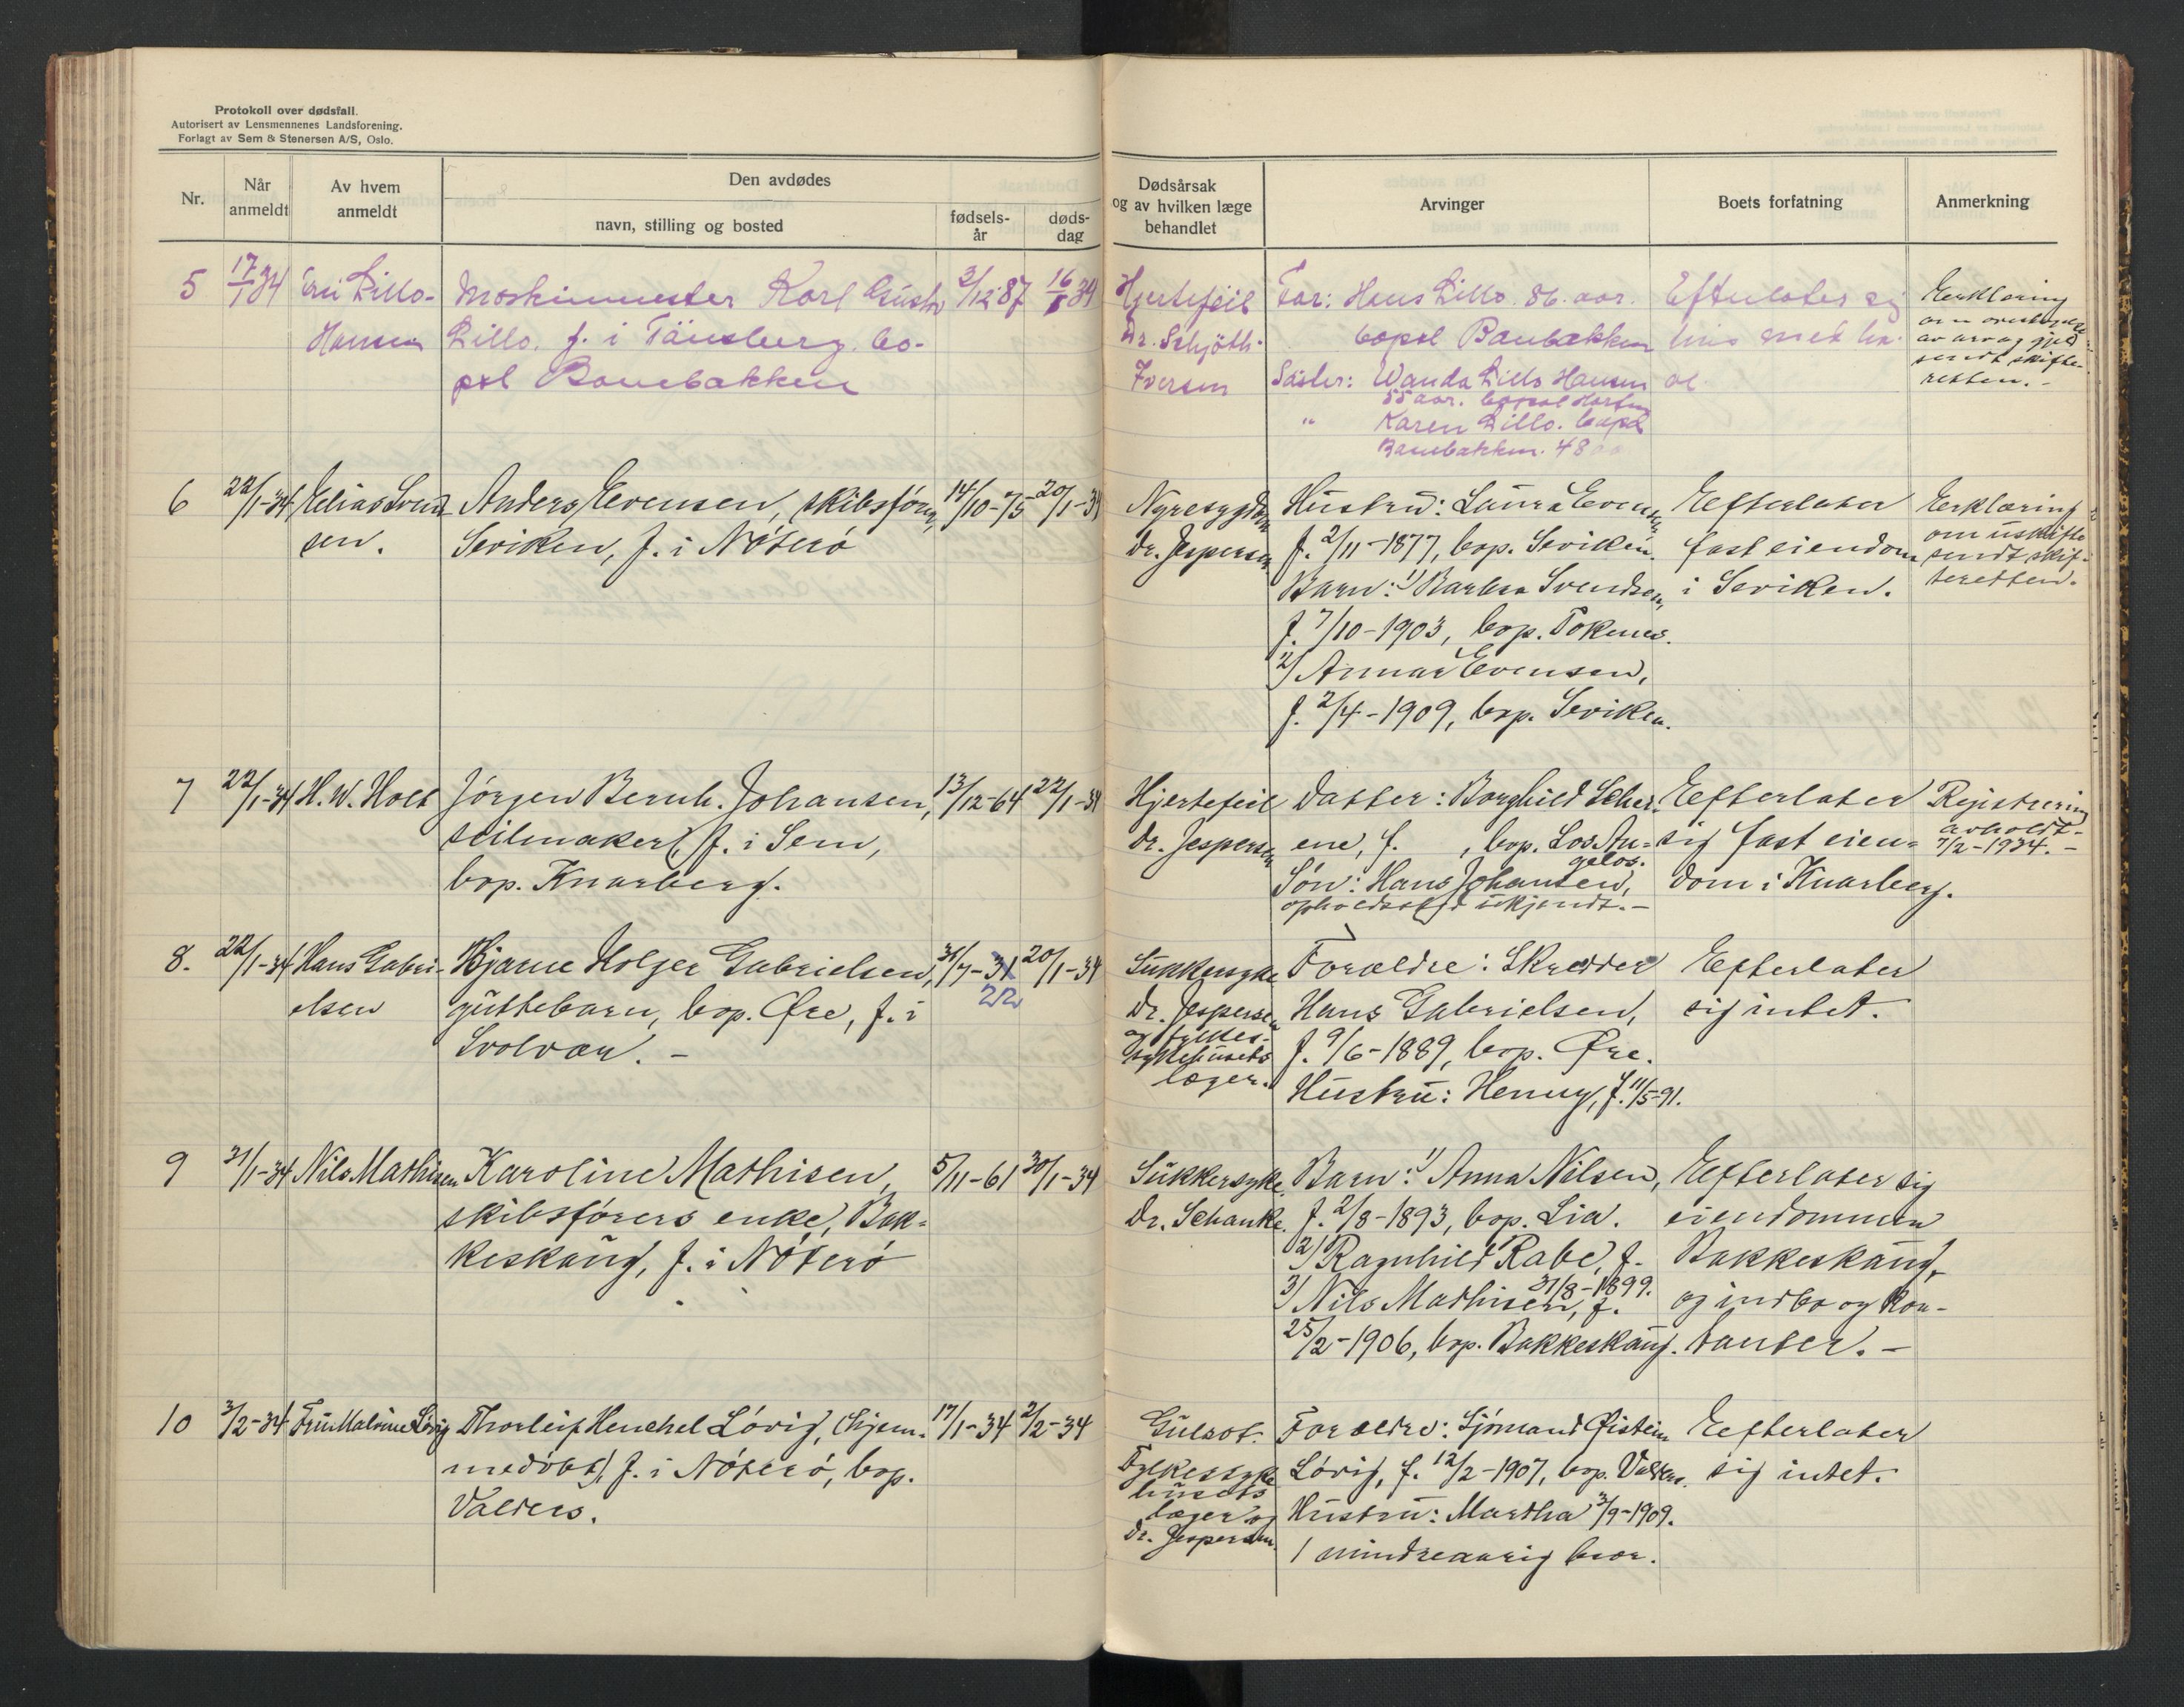 Protokoll over dødsfall.
Autorisert av Lensmennenes Landsforening.
Forlagt av Sem & Stenersen A/S, Oslo.
Nr.
Når anmeldt
Av hvem anmeldt
Den avdødes
navn, stilling og bosted
fødsels-år
døds-dag
Dødsårsak og av hvilken læge behandlet
Arvinger
Boets forfatning
Anmerkning
5
17/1 34
Lillo-
Hansen
Maskinmester Karl Gustav
Lillo. f. i Tänsberg. bo-
pæl Banebakken
3/12 87
16/1 34
Hjertefeil
Dr. Schjöth-
Iversen
Far: Hans Lillo. 86. aar.
bopæl Banebakken
Söster: Wanda Lillo Hansen
55 aar. bopæl Horten
" Karen Lillo. bopæl
Banebakken. 48 aar
Efterlater sig
Erklæring
om overtagelse
av arv og gjeld
sendt skifte-
retten. -
6
22/1-34
Elias Svend-
sen.
Anders Evensen, skibsfører,
Seviken, f. i Nøterø
14/10-75
20/1-34
Nyresygdom
Dr. Jespersen
Hustru: Laura Evensen,
f. 2/11-1877, bop. Seviken.
Barn: 1) Barbra Svendsen,
f. 7/10-1903, bop. Tokenes.
2) Annar Evensen,
f. 2/4-1909, bop. Seviken.
Efterlater
fast eiendom
i Seviken.
Erklæring
om uskifte
sendt skif-
teretten.
7
22/1-34
H. W. Holt
Jørgen Bernh. Johansen,
seilmaker, f. i Sem,
bop. Knarberg.
13/12-64
22/1-34
Hjertefeil
Dr. Jespersen
Datter: Borghild Scher-
ene, f. , bop. Los An-
gelos.
Søn: Hans Johansen,
opholdssted ukjendt. -
Efterlater
sig fast eien-
dom i Knarberg.
Registrering
avholdt-
7/2-1934. -
8.
22/1-34
Hans Gabri-
elsen
Bjarne Holger Gabrielsen,
guttebarn, bop. Øre, f. i
Svolvær. -
31/7-31
22
20/1-34
Sukkersyke
Dr. Jespersen
og fylkes-
sykehusets
læger.
Forældre: Skredder
Hans Gabrielsen,
f. 9/6-1889, bop. Øre.
Hustru: Henny, f. 11/5-91.
Efterlater
sig intet.
9
31/1-34
Nils Mathisen
Karoline Mathisen,
skibsførers enke, Bak-
keskaug, f. i Nøterø
5/11-61
30/1-34
Sukkersyke.
Dr. Schanke.
Barn: 1) Anna Nilsen,
f. 2/8-1893, bop. Lia.
2) Ragnhild Rabe, f.
31/8-1899.
3) Nils Mathisen, f.
25/2-1906, bop. Bakkeskaug.
Efterlater sig
eiendommen
Bakkeskaug,
og indbo og kon-
tanter. -
10
3/2-34
Fru Malvine Løvig
Thorleif Henchel Løvig, (hjem-
medøbt), f. i Nøterø, bop.
Valders.
17/1-34
2/2-34
Gulsot.
Fylkessyke
husets
læger og
Dr. Jespersen.
Forældre: Sjømand Øistein
Løvig, f. 12/2-1907, bop. Valders.
Hustru: Martha 3/9-1909.
1 mindreaarig bror.
Efterlater
sig intet.